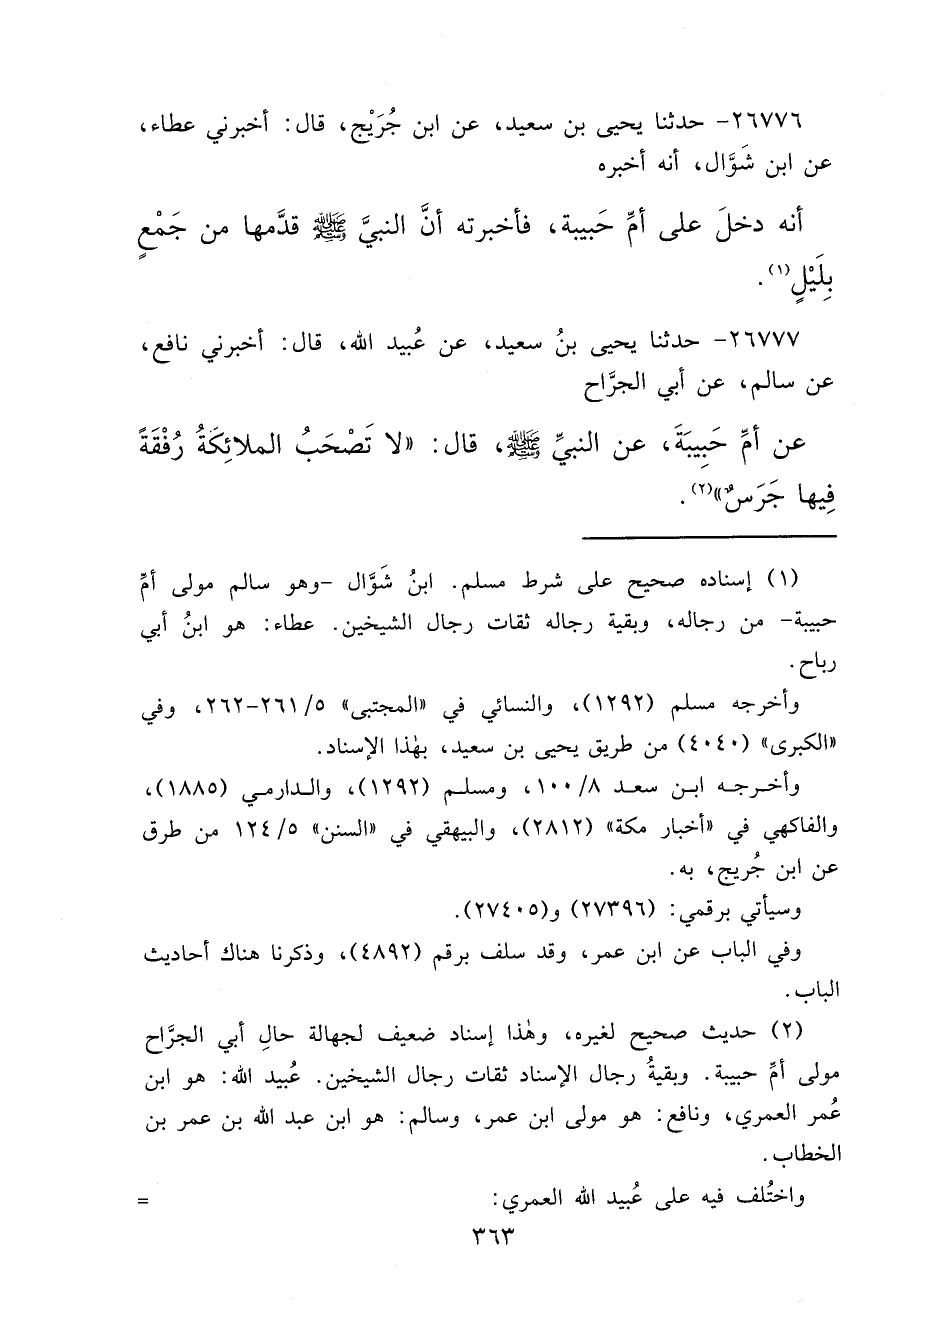 ٢٦٧٧٦- حدثنا يحيى بن سعيد، عن ابن جُرَيْج، قال: أخبرني عطاء،
عن ابن شَوَّال، أنه أخبره
أنه دخلَ على أمِّ حَبيبة، فأخبرته أنَّ النبيَّ ﷺ قدَّمها من جَمْعٍ
بِلَيْلٍ(١).
٢٦٧٧٧- حدثنا يحيى بنُ سعيد، عن عُبيد الله، قال: أخبرني نافع،
عن سالم، عن أبي الجرَّاح
عن أمِّ حَبِيبَةَ، عن النبيِّ ﷺ، قال: «لا تَصْحَبُ الملائِكَةُ رُفْقَةً
فِيها جَرَسٌ»(٢).
(١) إسناده صحيح على شرط مسلم. ابنُ شَوَّال -وهو سالم مولى أمِّ
حبيبة- من رجاله، وبقية رجاله ثقات رجال الشيخين. عطاء: هو ابنُ أبي
رباح.
وأخرجه مسلم (١٢٩٢)، والنسائي في «المجتبى» ٥/ ٢٦١-٢٦٢، وفي
«الكبرى» (٤٠٤٠) من طريق يحيى بن سعيد، بهٰذا الإسناد.
وأخرجه ابن سعد ٨/ ١٠٠، ومسلم (١٢٩٢)، والدارمي (١٨٨٥)،
والفاكهي في «أخبار مكة» (٢٨١٢)، والبيهقي في «السنن» ٥/ ١٢٤ من طرق
عن ابن جُريج، به.
وسيأتي برقمي: (٢٧٣٩٦) و(٢٧٤٠٥).
وفي الباب عن ابن عمر، وقد سلف برقم (٤٨٩٢)، وذكرنا هناك أحاديث
الباب.
(٢) حديث صحيح لغيره، وهٰذا إسناد ضعيف لجهالة حالِ أبي الجرَّاح
مولى أمِّ حبيبة. وبقيةُ رجال الإسناد ثقات رجال الشيخين. عُبيد الله: هو ابن
عُمر العمري، ونافع: هو مولى ابن عمر، وسالم: هو ابن عبد الله بن عمر بن
الخطاب.
واختُلف فيه على عُبيد الله العمري: =
٣٦٣